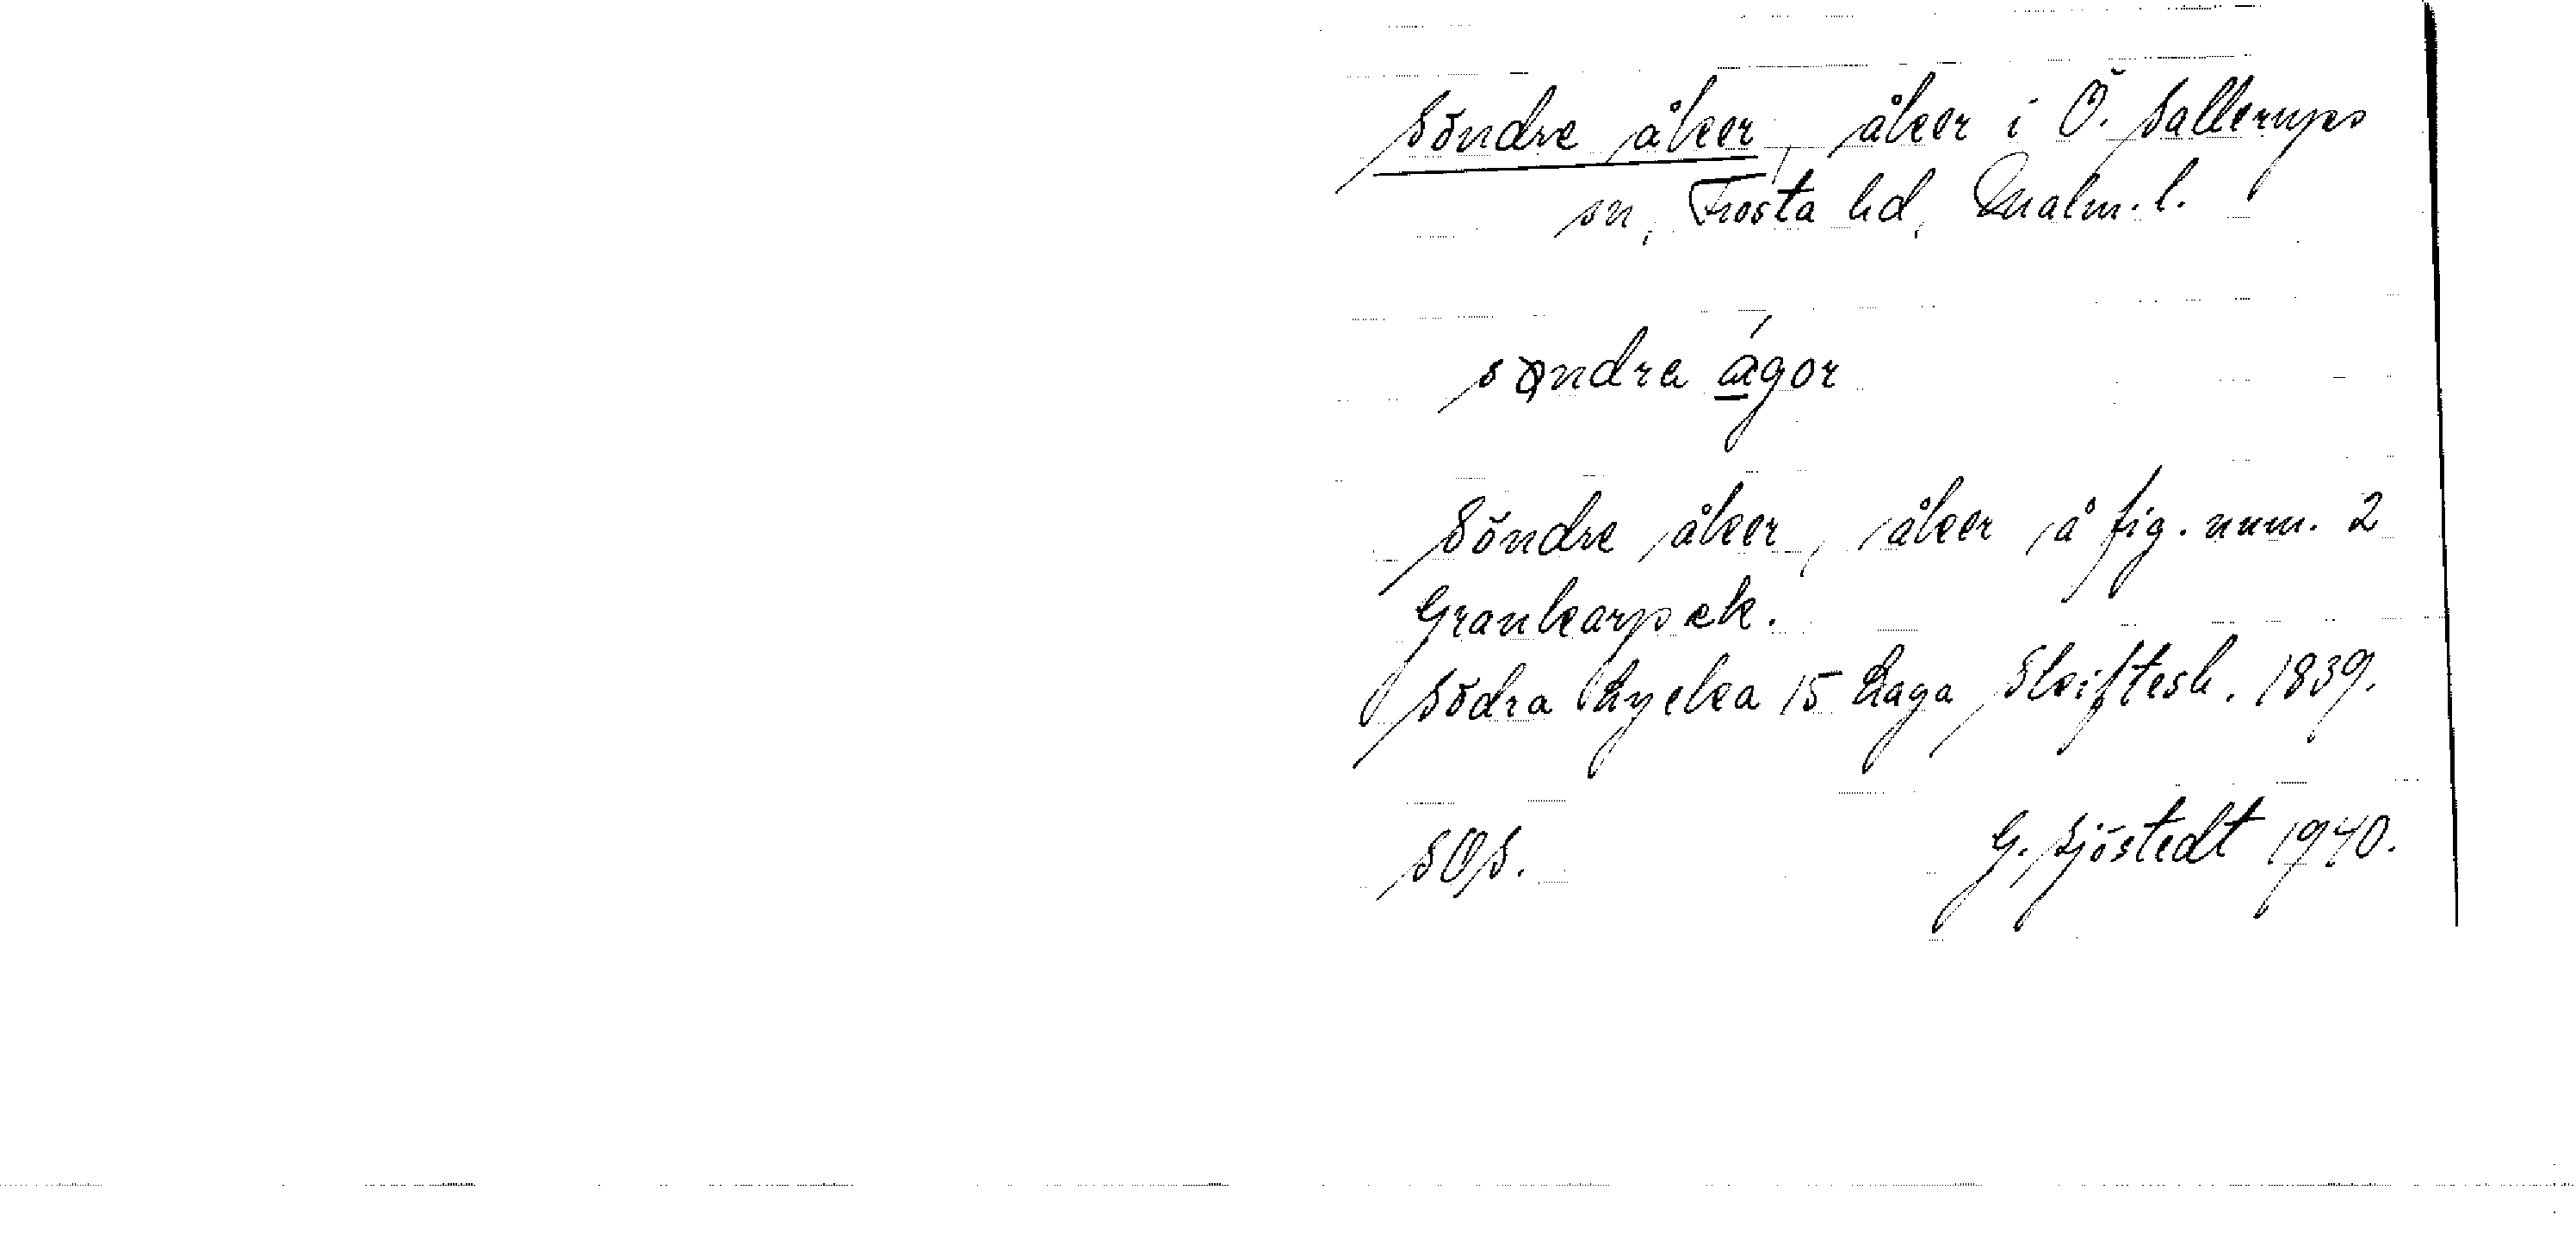 Söndre åker, åker i Ö. Sallerups
sn, Frosta hd, Malm. l.
sọndra ágor
Söndre åker, åker å fig. num. 2
Grankarp ek.
Södra Lycka 15 Laga Skiftesh. 1839.
SOS. G. Sjöstedt 1940.